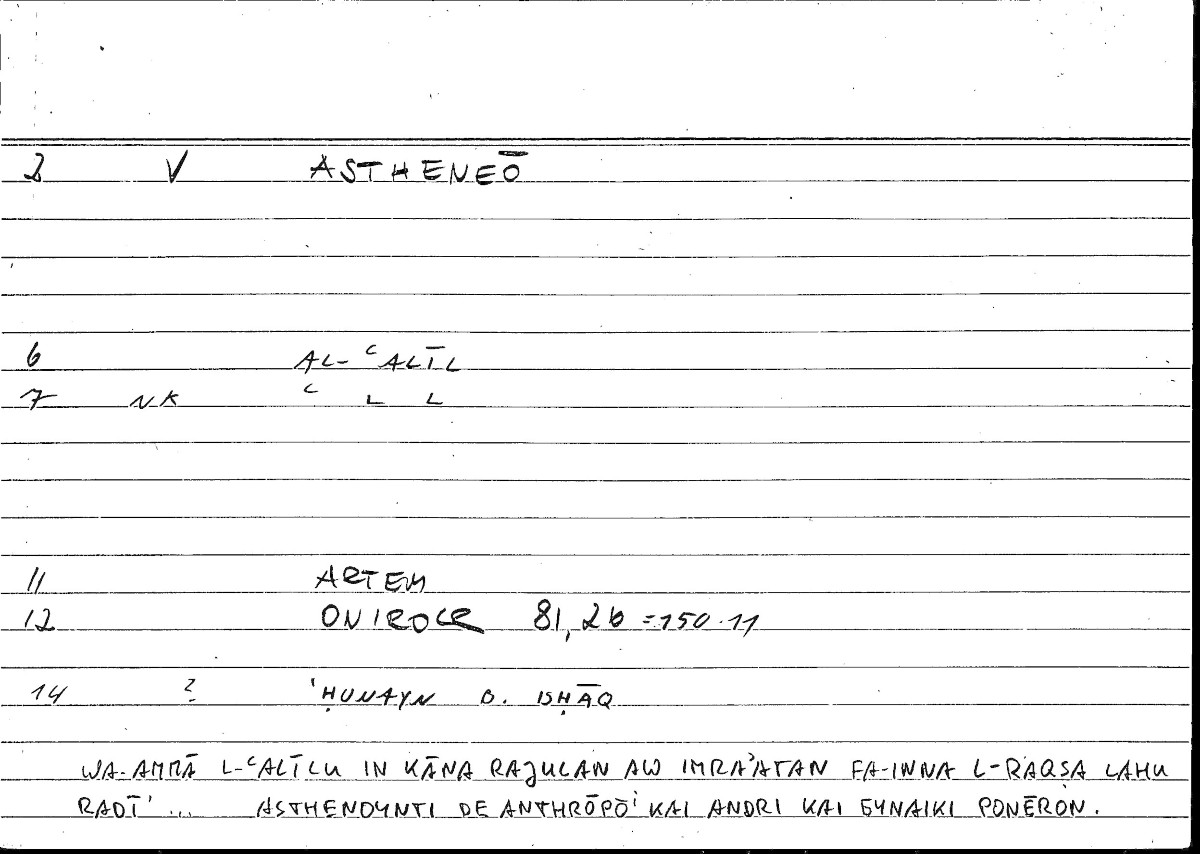 2 V ASTHENEŌ
6 AL-ʿALĪL
7 NK ʿ L L
11 ARTEM
12 ONIROCR 81,26 =150.11
14 ? ḤUNAYN B. ISḤĀQ
WA-AMMĀ L-ʿALĪLU IN KĀNA RAJULAN AW IMRAʾATAN FA-INNA L-RAQSA LAHU
RADĪʾ ... ASTHENOYNTI DE ANTHRŌPŌⁱ KAI ANDRI KAI GYNAIKI PONĒRON.